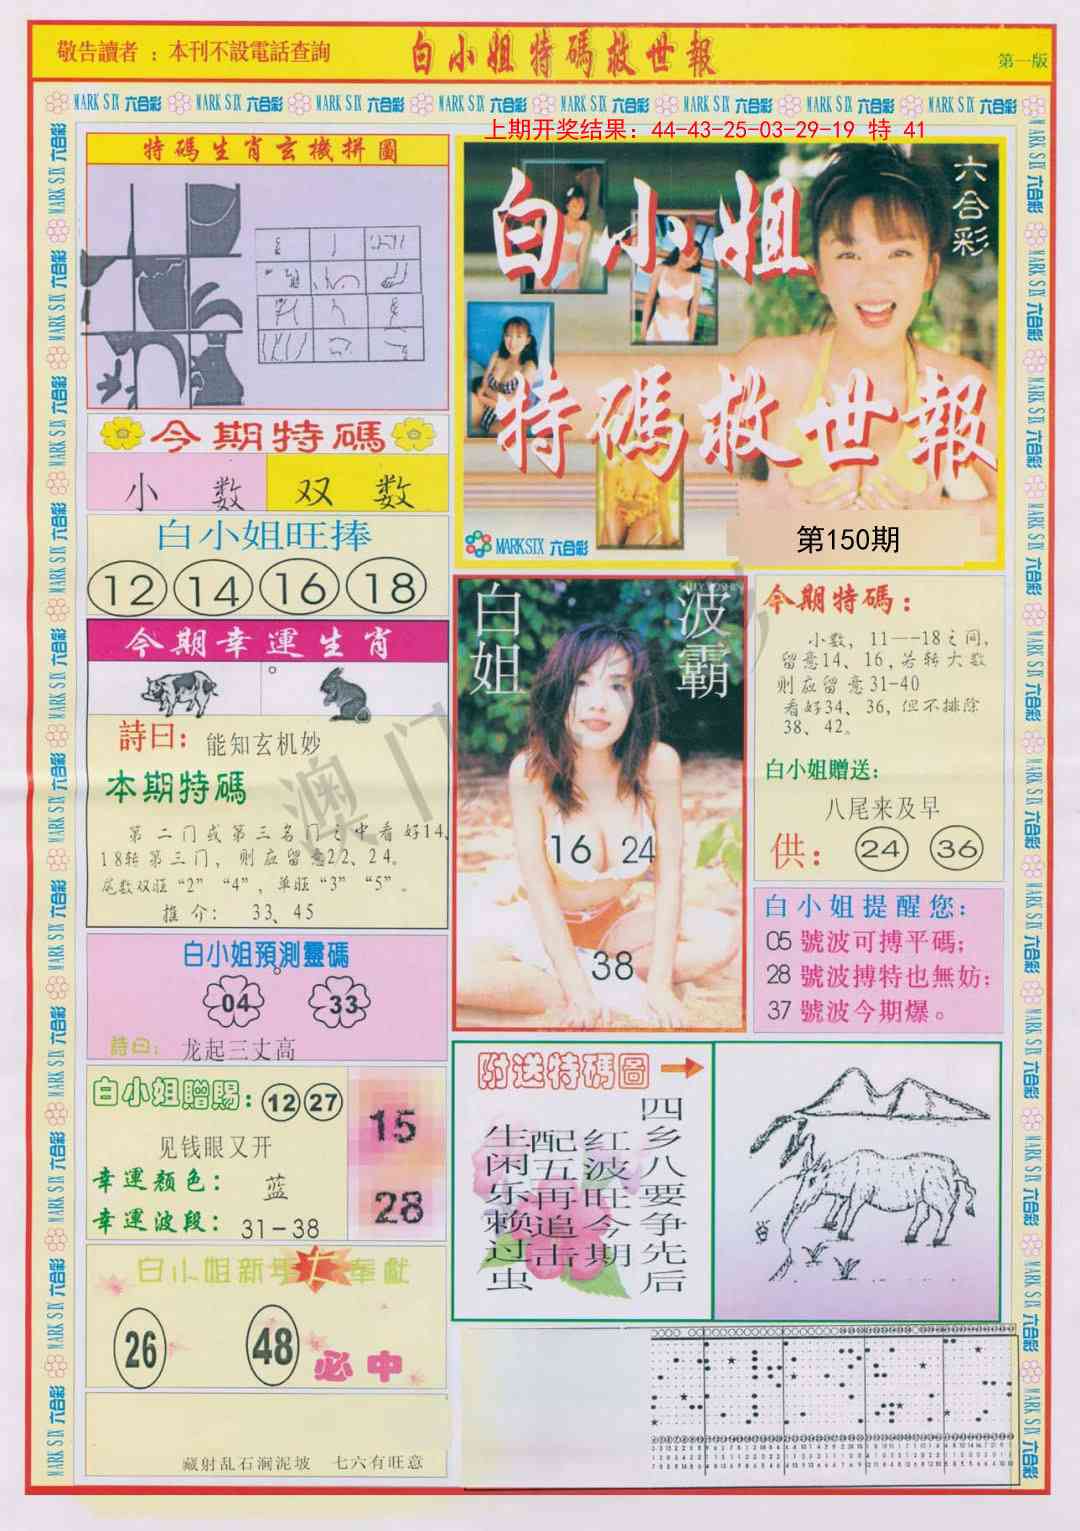 敬告讀者：本刊不設電話查詢
白小姐特碼救世報
第一版
MARK SIX 六合彩 MARK SIX 六合彩 MARK SIX 六合彩 MARK SIX 六合彩 MARK SIX 六合彩 MARK SIX 六合彩 MARK SIX 六合彩 MARK SIX 六合彩
上期开奖结果：44-43-25-03-29-19 特 41
特碼生肖玄機拼圖
今期特碼
小数
双数
白小姐旺捧
12 14 16 18
今期幸運生肖
詩曰：能知玄机妙
本期特碼
第二门或第三名门之中看好14、
18转第三门，则应留意22、24。
尾数双旺“2”“4”，单旺“3”“5”。
推介：33、45
白小姐預測靈碼
04 33
詩曰：龙起三丈高
白小姐贈賜：12 27
见钱眼又开
幸運顏色：蓝
幸運波段：31-38
15
28
白小姐新 奉獻
26 48 必中
藏射乱石涧泥坡 七六有旺意
六合彩
白小姐
特碼救世報
MARK SIX 六合彩
第150期
白姐
波霸
16 24
38
今期特碼：
小数，11—18之间，
留意14、16，若转大数
则应留意31-40
看好34、36，但不排除
38、42。
白小姐贈送：
八尾来及早
供：24 36
白小姐提醒您：
05 號波可搏平碼；
28 號波搏特也無妨；
37 號波今期爆。
附送特碼圖
四乡八要争先后
红波旺今期
配五再追击
生闲乐赖过虫
澳门